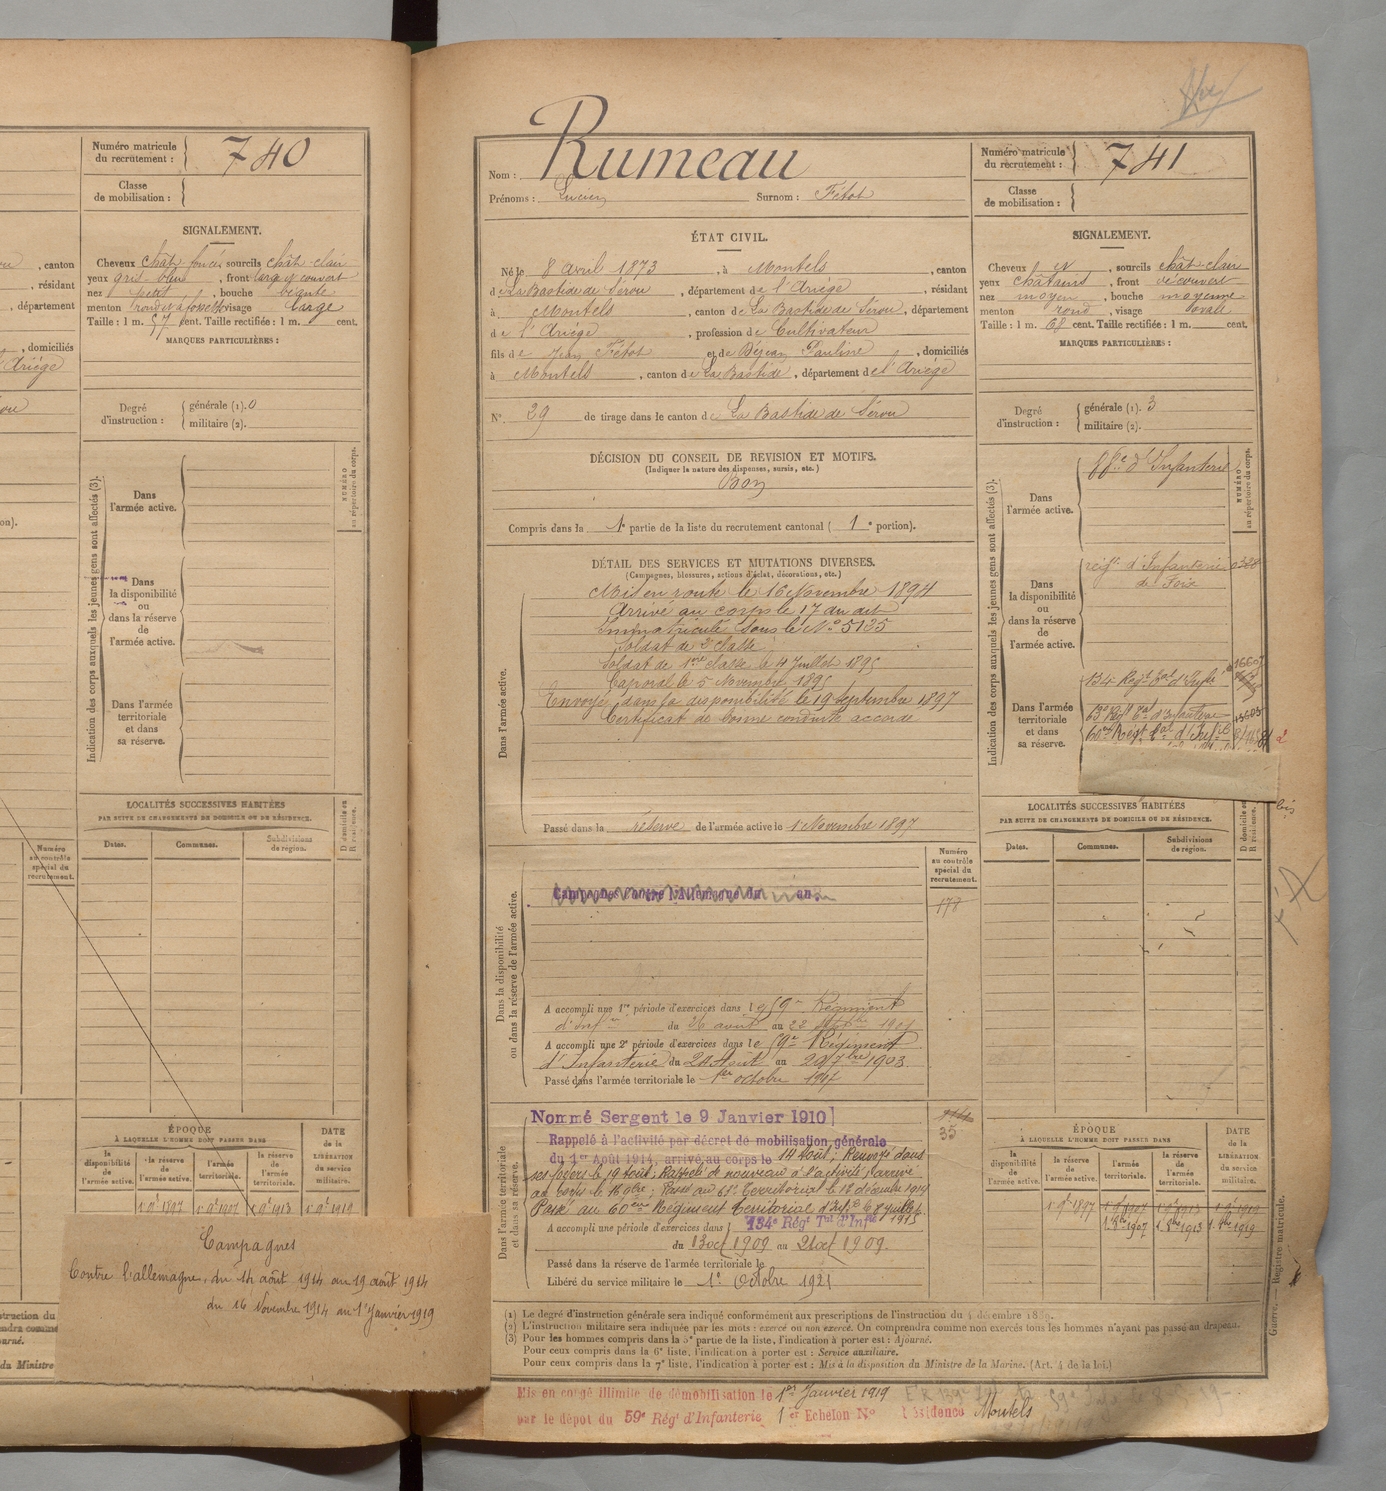 Numéro matricule
du recrutement :
740
Classe
de mobilisation :
SIGNALEMENT.
Cheveux chât. foncé sourcils chât-clair
yeux gris-bleu, front large et couvert
nez petit, bouche béante
menton rond et à fossette visage large
Taille : 1 m. 57 cent. Taille rectifiée : 1 m. cent.
MARQUES PARTICULIÈRES :
, canton
, résidant
, département
, domiciliés
Ariège
Degré
d'instruction :
générale (1). 0
militaire (2).
Indication des corps auxquels les jeunes gens sont affectés (3).
NUMÉRO
au répertoire du corps.
Dans
l'armée active.
Dans
la disponibilité
ou
dans la réserve
de
l'armée active.
Dans l'armée
territoriale
et dans
sa réserve.
LOCALITÉS SUCCESSIVES HABITÉES
PAR SUITE DE CHANGEMENTS DE DOMICILE OU DE RÉSIDENCE.
Dates.
Communes.
Subdivisions
de région.
D domicile ou
R résidence.
Numéro
au contrôle
spécial du
recrutement.
ÉPOQUE
À LAQUELLE L'HOMME DOIT PASSER DANS
DATE
de la
LIBÉRATION
du service
militaire.
la
disponibilité
de
l'armée active.
la réserve
de
l'armée active.
l'armée
territoriale.
la réserve
de
l'armée
territoriale.
1897
1907
1913
1919
Campagnes
Contre l'allemagne, du 14 août 1914 au 19 août 1914
du 16 Novembre 1914 au 1er Janvier 1919
Nom : Rumeau
Prénoms : Lucien Surnom : Fétot
ÉTAT CIVIL.
Né le 8 avril 1873, à Montels, canton
de La Bastide de Sérou, département de l'Ariège, résidant
à Montels, canton de La Bastide de Sérou, département
de l'Ariège, profession de Cultivateur
fils de Jean Fétot et de Béjean Pauline, domiciliés
à Montels, canton de La Bastide, département de l'Ariège
N° 29 de tirage dans le canton de La Bastide de Sérou
DÉCISION DU CONSEIL DE REVISION ET MOTIFS.
(Indiquer la nature des dispenses, sursis, etc.)
Bon
Compris dans la 1e partie de la liste du recrutement cantonal ( 1e portion).
DÉTAIL DES SERVICES ET MUTATIONS DIVERSES.
(Campagnes, blessures, actions d'éclat, décorations, etc.)
Dans l'armée active.
Mis en route le 16 Novembre 1894
Arrivé au corps le 17 du dit
Immatriculé sous le N° 5125
Soldat de 2e classe
Soldat de 1ère classe le 4 Juillet 1895
Caporal le 5 Novembre 1895
Envoyé dans la disponibilité le 19 Septembre 1897
Certificat de bonne conduite accordé
Passé dans la réserve de l'armée active le 1 Novembre 1897
Numéro
au contrôle
spécial du
recrutement.
178
Dans la disponibilité
ou dans la réserve de l'armée active.
Campagnes contre l'Allemagne du au
A accompli une 1re période d'exercices dans le 59e Régiment
d'Infie du 26 août au 22 Septbre 1901
A accompli une 2e période d'exercices dans le 59e Régiment
d'Infanterie du 24 Août au 20 7bre 1903
Passé dans l'armée territoriale le 1er octobre 1907
Dans l'armée territoriale
et dans sa réserve.
Nommé Sergent le 9 Janvier 1910
35
Rappelé à l'activité par décret de mobilisation générale
du 1er Août 1914, arrivé au corps le 14 août ; Renvoyé dans
ses foyers le 19 août ; Rappelé de nouveau à l'activité ; arrivé
au corps le 16 9bre ; Passé au 63e Territorial le 18 décembre 1914
Passé au 60ème Régiment territorial d'Infie le 8 juillet 1915
A accompli une période d'exercices dans 134e Régt Tal d'Infie
du 13 oct 1909 au 21 oct 1909.
Passé dans la réserve de l'armée territoriale le
Libéré du service militaire le 1e Octobre 1921
(1) Le degré d'instruction générale sera indiqué conformément aux prescriptions de l'instruction du 4 décembre 1889.
(2) L'instruction militaire sera indiquée par les mots : exercé ou non exercé. On comprendra comme non exercés tous les hommes n'ayant pas passé au drapeau.
(3) Pour les hommes compris dans la 5e partie de la liste, l'indication à porter est : Ajourné.
Pour ceux compris dans la 6e liste, l'indication à porter est : Service auxiliaire.
Pour ceux compris dans la 7e liste, l'indication à porter est : Mis à la disposition du Ministre de la Marine. (Art. 4 de la loi.)
Mis en congé illimité de démobilisation le 1er Janvier 1919
par le dépôt du 59e Régt d'Infanterie 1er Echelon N° Résidence Montels
Numéro matricule
du recrutement :
741
Classe
de mobilisation :
SIGNALEMENT.
Cheveux et, sourcils chât-clair
yeux châtains, front découvert
nez moyen, bouche moyenne
menton rond, visage ovale
Taille : 1 m. 68 cent. Taille rectifiée : 1 m. cent.
MARQUES PARTICULIÈRES :
Degré
d'instruction :
générale (1). 3
militaire (2).
Indication des corps auxquels les jeunes gens sont affectés (3).
NUMÉRO
au répertoire du corps.
Dans
l'armée active.
d'Infanterie
Dans
la disponibilité
ou
dans la réserve
de
l'armée active.
régt d'Infanterie
de Foix
0388
Dans l'armée
territoriale
et dans
sa réserve.
134 Régt Tal d'Infie
63e Régt Tal d'Infanterie
60ème Régt Tal d'Infie
LOCALITÉS SUCCESSIVES HABITÉES
PAR SUITE DE CHANGEMENTS DE DOMICILE OU DE RÉSIDENCE.
Dates.
Communes.
Subdivisions
de région.
D domicile ou
R résidence.
bis
ÉPOQUE
À LAQUELLE L'HOMME DOIT PASSER DANS
DATE
de la
LIBÉRATION
du service
militaire.
la
disponibilité
de
l'armée active.
la réserve
de
l'armée active.
l'armée
territoriale.
la réserve
de
l'armée
territoriale.
1897
1907
1913
1919
1907
1913
1919
Guerre. — Registre matricule.